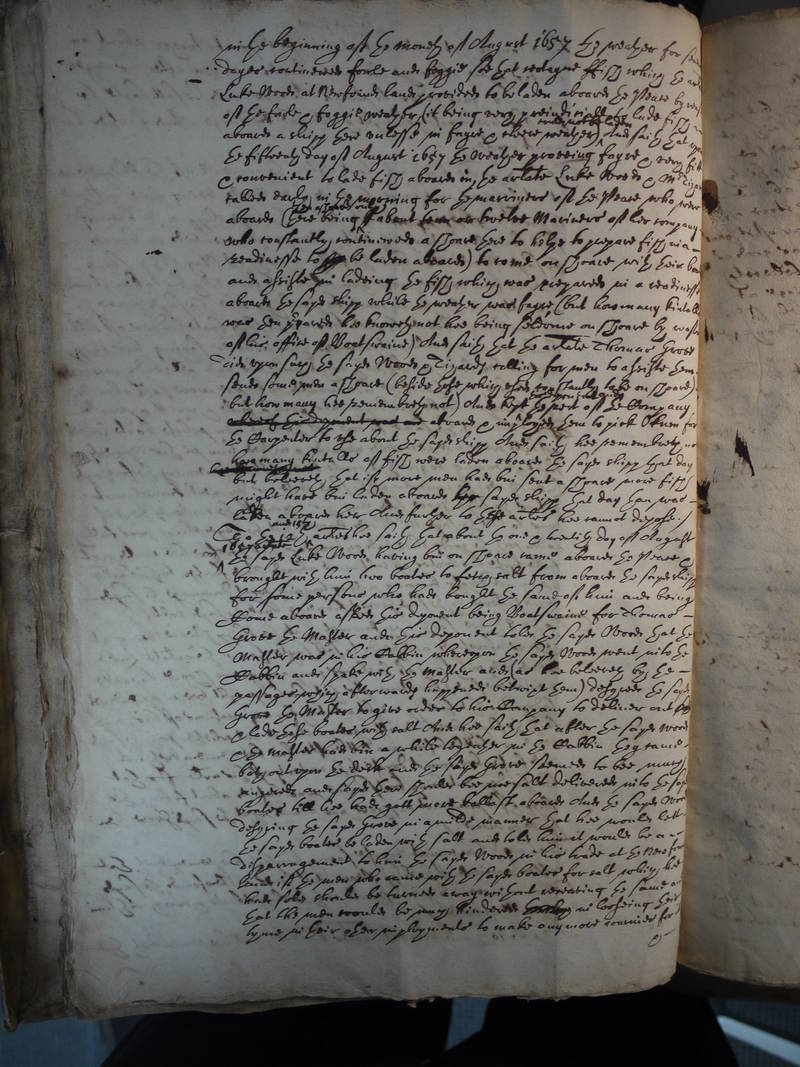 in the beginning of the moneth of August 1657 the weather for some
dayes continewed fowle and foggie soe that certayne ffish which the sayd
Luke Woods at Newfoundland provided to be laden aboard the Peace by reason
of the fowle & foggie weather (it being very preiudiciall to lade fish
aboard a shipp there unlesse in fayre & cleere weather) And saith that upon
the fifteenth day of August 1657 the weather proveing fayre & very fitt
& convenient to lade fish aboard in, the arlate Luke Woods &
called early in the morning for the marriners of the Peace who were
aboard (there being about tenn or twelve Mariners of her company
who constantly continewed a shoare there to helpe to prepare fish in a
readinesse to be laden aboard) to come on shoare with their boate
and assiste in ladeing the fish which was prepared in a readinesse
aboard the sayd shipp while the weather was fayre (but howmany kintalls
was then prepared hee knoweth not hee being seldome on shoare by reason
of his office of Boatswaine) And saith that the arlate Thomas Grove
did upon such the sayd Woods & Tizards calling for men to assiste them
send some men a shoare (beside those which were constantly kept on shoare)
but how many hee remembreth not) And kept the rest of the Company
aboard & imployed them to pick Okum for
the Carpenter to use about the sayd shipp And saith hee remembreth not
howmany kintalls of fish were laden aboard the sayd shipp that day
but beleeveth that if more men had bin sent a shoare more fish
might have bin laden aboard the sayd shipp that day than was
laden aboard her And further to this article hee cannot depose./
To the article hee saith that about the one & twentith day of August
the sayd Luke Woods having bin on shoare came aboard the Peace &
brought with him two boates to fetch salt from aboard the sayd shipp
for some persons who had bought the same of him and being
come aboard asked this deponent being Boatswaine for Thomas
Grove the Master and this deponent told the sayd Woods that the
Master was in his Cabbin whereupon the sayd Woods went into the
Cabbin and spake with the Master and (as hee beleeveth by the
passages which afterwards happened betwixt them) desyred the sayd
Grove the Master to give order to his Company to deliver out
& lade those boates with salt And hee saith that after the sayd Woods
& the Master had bin a while together in the Cabbin they came
both out upon the deck and the sayd Grove seemed to bee much
angered and sayd there should bee noe salt delivered into the sayd
boates till hee had gott more ballast aboard And the sayd Woods
desyring the sayd Grove in a milde manner that hee would lett
the sayd boates be laden with salt and told him it would be a
disparragement to him the sayd Woods in his trade at the Newfound
land if the men who came with the sayd boates for salt which hee
had sold should be turned away without receaving the same and
that the men would be much hindered in looseing their
tyme in their other imployments to make any more iournies for
&